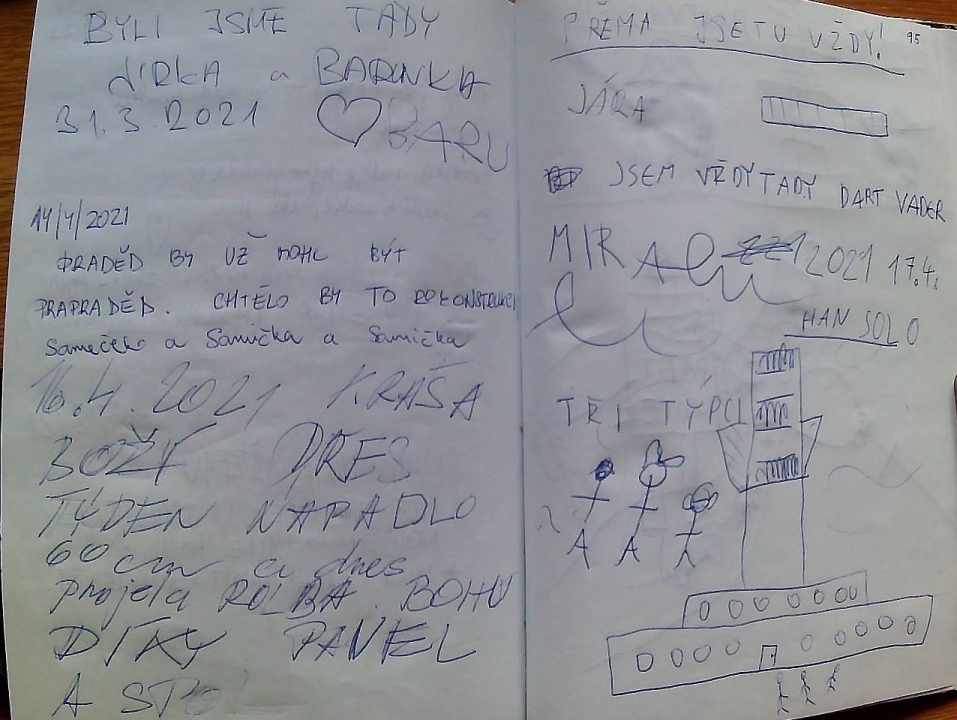 BYLI JSME TADY
JIRKA a BARUNKA
31.3.2021 BARU
14/4/2021
PRADĚD BY UŽ MOHL BÝT
PRAPRADĚD. CHTĚLO BY TO REKONSTRUKCI
Sameček a Samička a Samička
16.4.2021 KRÁSA
BOŽÍ DRES
TÝDEN NAPADLO
60 cm a dnes
projela ROLBA. BOHU
DÍKY PAVEL
A SPOL
95
PŘEMA JSETU VŽDY!
JÁRA
JSEM VŽDY TADY DART VADER
MIRA 2021 17.4.
HAN SOLO
TŘI TÝPCI